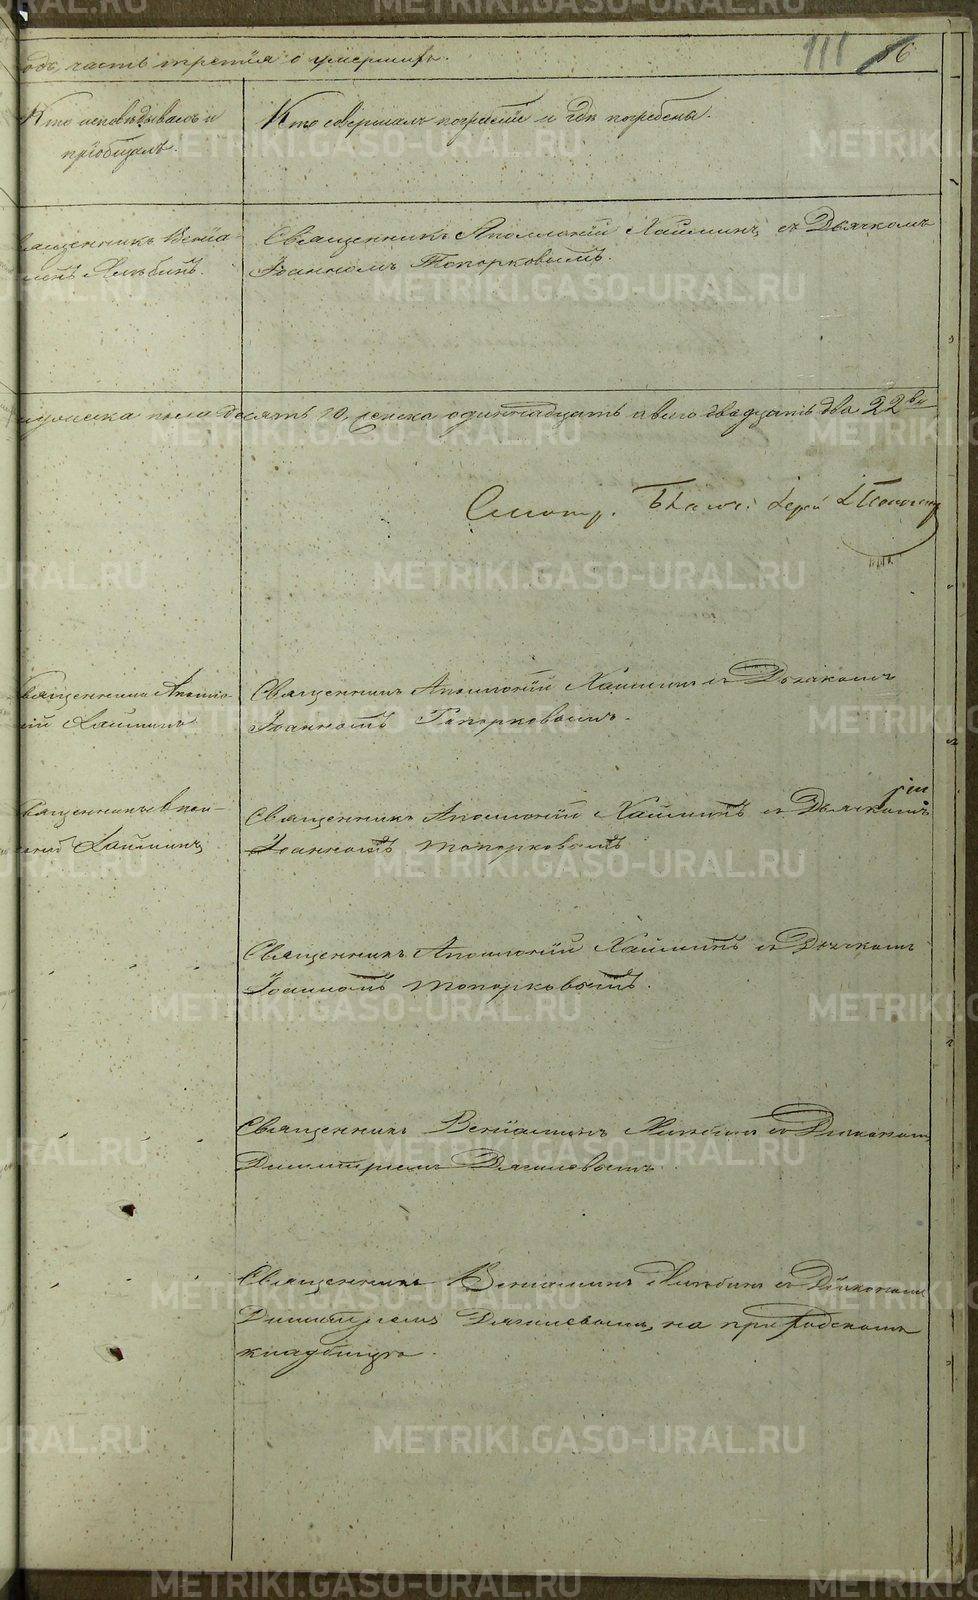 111 86
одъ, часть третія о умершихъ.
Кто исповѣдывалъ и
пріобщалъ.
Кто совершалъ погребеніе и гдѣ погребены.
вященникъ Веніа-
минъ
Священникъ Аполлоній Хайминъ съ Дьячкомъ
Іоанномъ Топорковымъ.
мужеска пола десять 10, женска одиннадцать а всего двадцать два 22
Смотр. Благ: Іерей
вященникъ Аполло-
ній Хайминъ
Священникъ Аполлоній Хайминъ съ Дьячкомъ
Іоанномъ Топорковымъ.
вященникъ Апол-
лоній Хайминъ
Священникъ Аполлоній Хайминъ съ Дьячкомъ
Іоанномъ Топорковымъ
Священникъ Аполлоній Хайминъ съ Дьячкомъ
Іоанномъ Топорковымъ.
Священникъ Веніаминъ съ Діакономъ
Димитріемъ Дягилевымъ.
Священникъ Веніаминъ съ Діакономъ
Димитріемъ Дягилевымъ, на приходскомъ
кладбищѣ.
METRIKI.GASO-URAL.RU